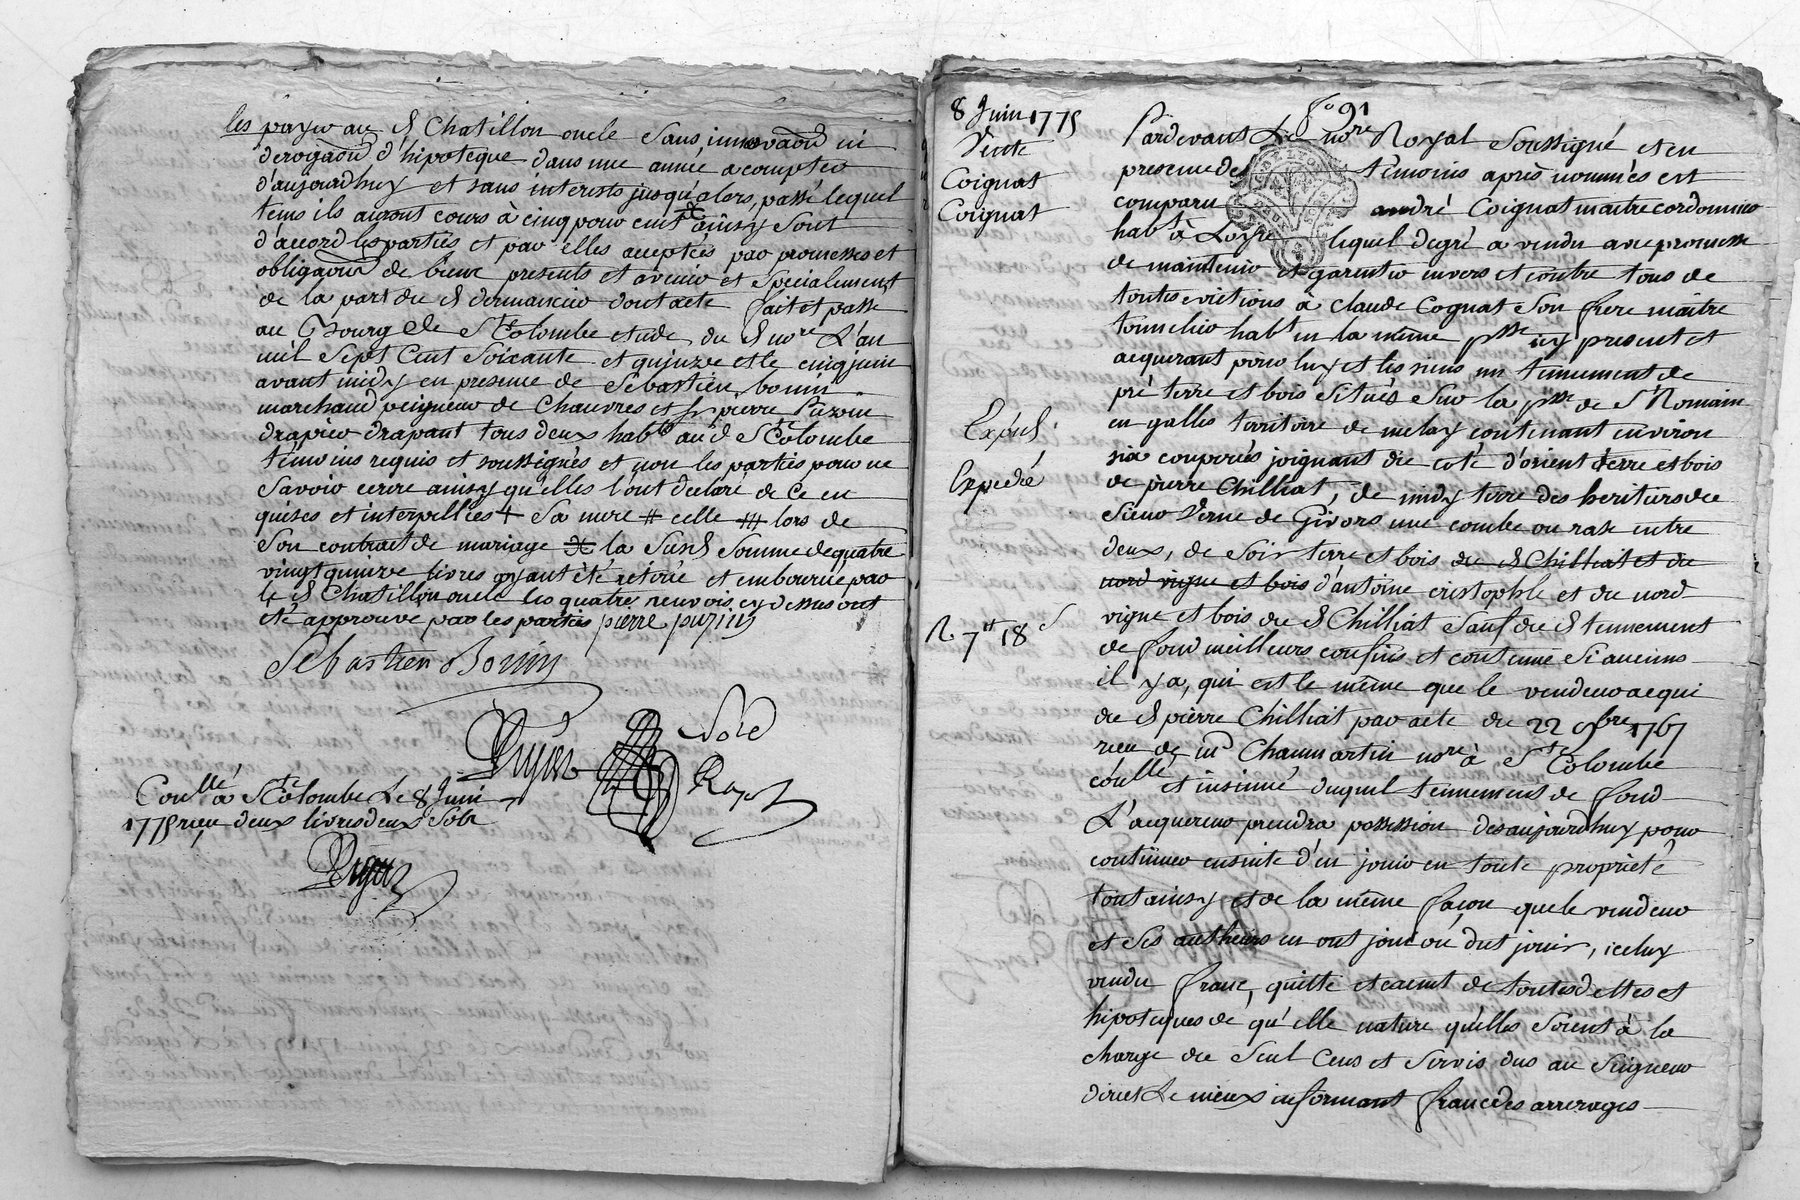 les payer au S Chatillon oncle sans innovaõn ni
derogaõn d'hipoteque dans une année a compter
d'aujourdhuy et sans interests jusqu'alors, passé lequel
tems ils auront cours à cinq pour cent ainsy sont
d'accord les parties et par elles acceptés par promesses et
obligaõn de biens presents et avenir et specialement
de la part du S dont acte fait et passé
au Bourg de Ste Colombe etude du S nore L'an
mil sept cent soixante et quinze et le cinq juin
avant midy en presence de Sebastien bonin
marchand peigneur de Chanvres et Sr pierre Puzin
drapier drapant tous deux habts aud Ste Colombe
témoins requis et soussignés et non les parties pour ne
savoir ecrire ainsy qu'elles l'ont declaré de ce en
quises et interpellées + Sa mere # celle lors de
son contrait de mariage la susd somme de quatre
vingt quinze livres ayant été retirée et embourcée par
le S Chatillon oncle les quatre renvois cy dessus ont
eté approuvé par les parties pierre puzin
Sebastien Bonin
Coullé à Ste Colombe Le 8 Juin
1775 reçu deux livres deux sols
8 Juin 1775
Vente
Coignat
Coignat
Expedié
R 7tt 18s
fo 91
Pardevant Le nore Royal soussigné et en
presence des temoins après nommés est
comparu andré Coignat maitre cordonnier
habt à Loyre lequel degré a vendu avec promesse
de maintenir et garentir envers et contre tous de
toutes evictions à claude Cognat son frere maitre
tonnelier habt en la même psse icy present et
acquerant pour luy et les siens un tennement de
pré terre et bois situés sur la psse de St Romain
en galles territoire de melay contenant environ
six couporés joignant du coté d'orient terre et bois
de pierre Chilliat, de midy terre des heritiers de
sieur Verne de Givors une combe ou rase entre
deux, de soir terre et bois du S Chilliat et du
nord vigne et bois d'antoine cristophle et du nord
vigne et bois du S Chilliat sauf du S tennement
de fond meilleurs confins et contenue si aucuns
il y a, qui est le même que le vendeur acqui
du S pierre Chilliat par acte du 22 9bre 1767
reçu Chaumartin nore à Ste Colombe
coullé et insinué duquel tennement de fond
L'acquereur prendra possession des aujourdhuy pour
continuer ensuite d'en jouir en toute proprieté
tout ainsy et de la même façon que le vendeur
et ses autheurs en ont joui ou dut jouir, iceluy
vendu franc, quitte et exempt de toutes dettes et
hipoteques de qu'elle nature qu'elles soient à la
charge du seul cens et servis dus au seigneur
direct Le mieux informant franc des arrerages